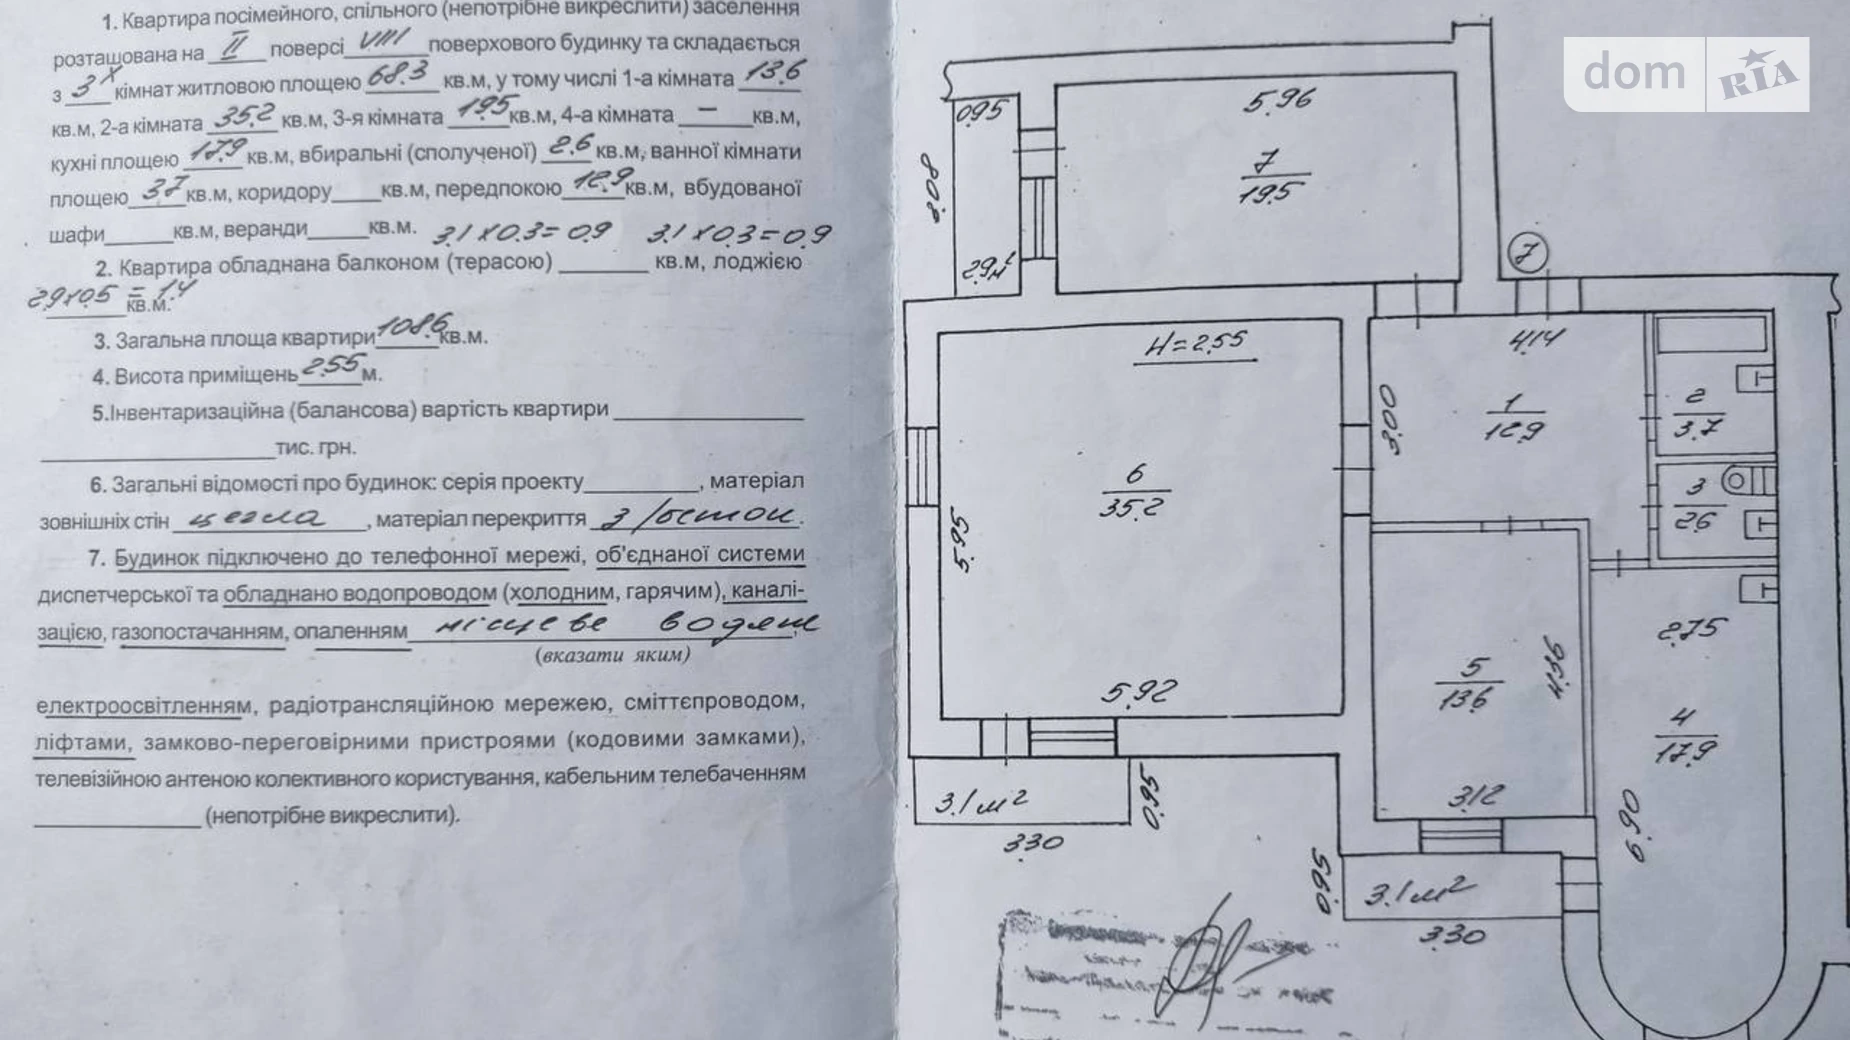 1. Квартира посімейного, спільного (непотрібне викреслити) заселення
розташована на II поверсі VIII поверхового будинку та складається
з 3х кімнат житловою площею 68.3 кв.м, у тому числі 1-а кімната 13.6
кв.м, 2-а кімната 35.2 кв.м, 3-я кімната 19.5 кв.м, 4-а кімната — кв.м,
кухні площею 17.9 кв.м, вбиральні (сполученої) 2.6 кв.м, ванної кімнати
площею 3.7 кв.м, коридору____кв.м, передпокою 12.9 кв.м, вбудованої
шафи______кв.м, веранди_____кв.м. 3.1 x 0.3 = 0.9 3.1 x 0.3 = 0.9
2. Квартира обладнана балконом (терасою) _______ кв.м, лоджією
2.9x0.5 = 1.4 кв.м.
3. Загальна площа квартири 108.6 кв.м.
4. Висота приміщень 2.55 м.
5.Інвентаризаційна (балансова) вартість квартири _______________
___________________тис. грн.
6. Загальні відомості про будинок: серія проекту_________, матеріал
зовнішніх стін цегла, матеріал перекриття з/бетон.
7. Будинок підключено до телефонної мережі, об'єднаної системи
диспетчерської та обладнано водопроводом (холодним, гарячим), каналі-
зацією, газопостачанням, опаленням місцеве водяне,
(вказати яким)
електроосвітленням, радіотрансляційною мережею, сміттєпроводом,
ліфтами, замково-переговірними пристроями (кодовими замками),
телевізійною антеною колективного користування, кабельним телебаченням
_____________ (непотрібне викреслити).
dom RIA
0.95
5.96
3.08
7
19.5
2.9м²
7
H=2.55
4.14
3.00
1
12.9
2
3.7
6
35.2
3
2.6
5.95
2.75
5
13.6
4.36
5.92
4
17.9
3.1м²
0.95
3.12
6.90
3.30
0.95
3.1м²
3.30